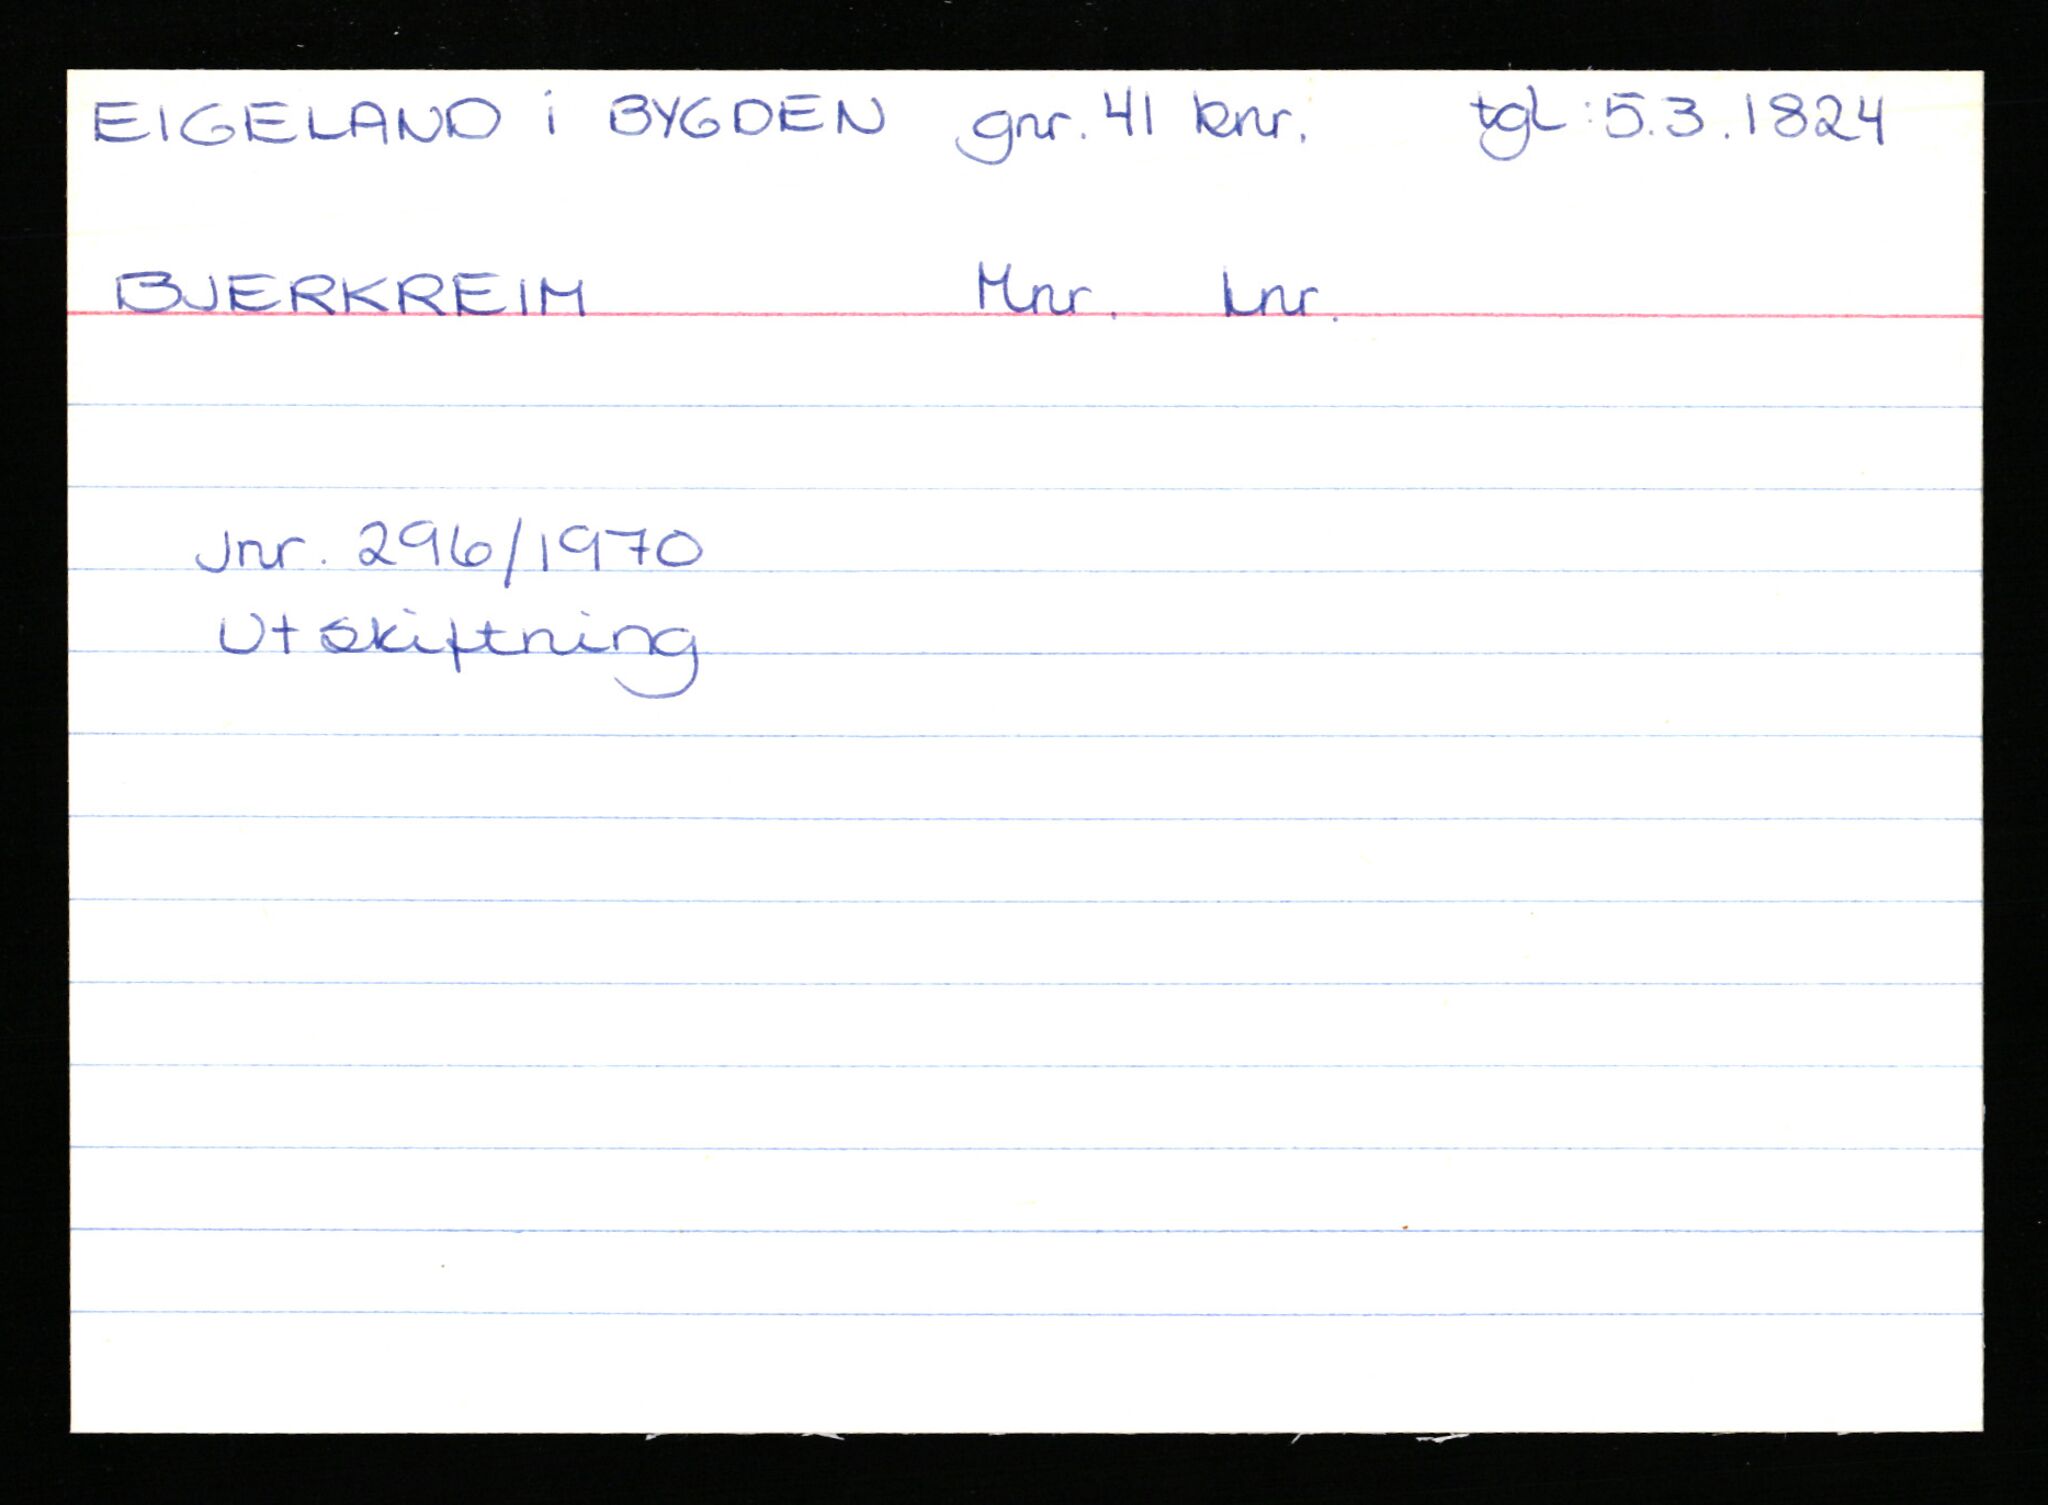 EIGELAND i BYGDEN gnr. 41 bnr. tgl: 5.3.1824
BJERKREIM Mnr. lnr.
Jnr. 296/1970
Utskiftning